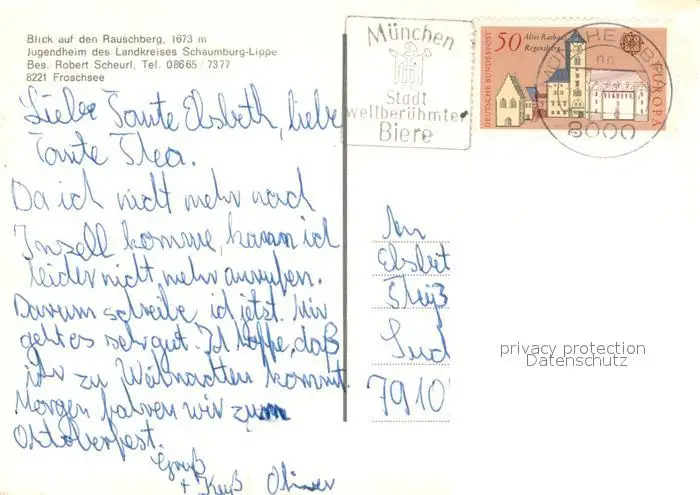 Blick auf den Rauschberg, 1673 m
Jugendheim des Landkreises Schaumburg-Lippe
Bes. Robert Scheurl, Tel. 08665/7377
8221 Froschsee
Liebe Tante Elsbeth, liebe
Tante Thea.
Da ich nicht mehr nach
Inzell komme, kann ich
leider nicht mehr anrufen.
Darum schreibe ich jetzt. Mir
geht es sehr gut. Ich hoffe, daß
ihr zu Weihnachten kommt.
Morgen fahren wir zum
Oktoberfest.
Gruß
+ Kuß Oliver
München
Stadt
weltberühmter
Biere
DEUTSCHE BUNDESPOST
50
Altes Rathaus
Regensburg
EUROPA
MÜNCHEN
8000
An
Elsbet
7910
privacy protection
Datenschutz